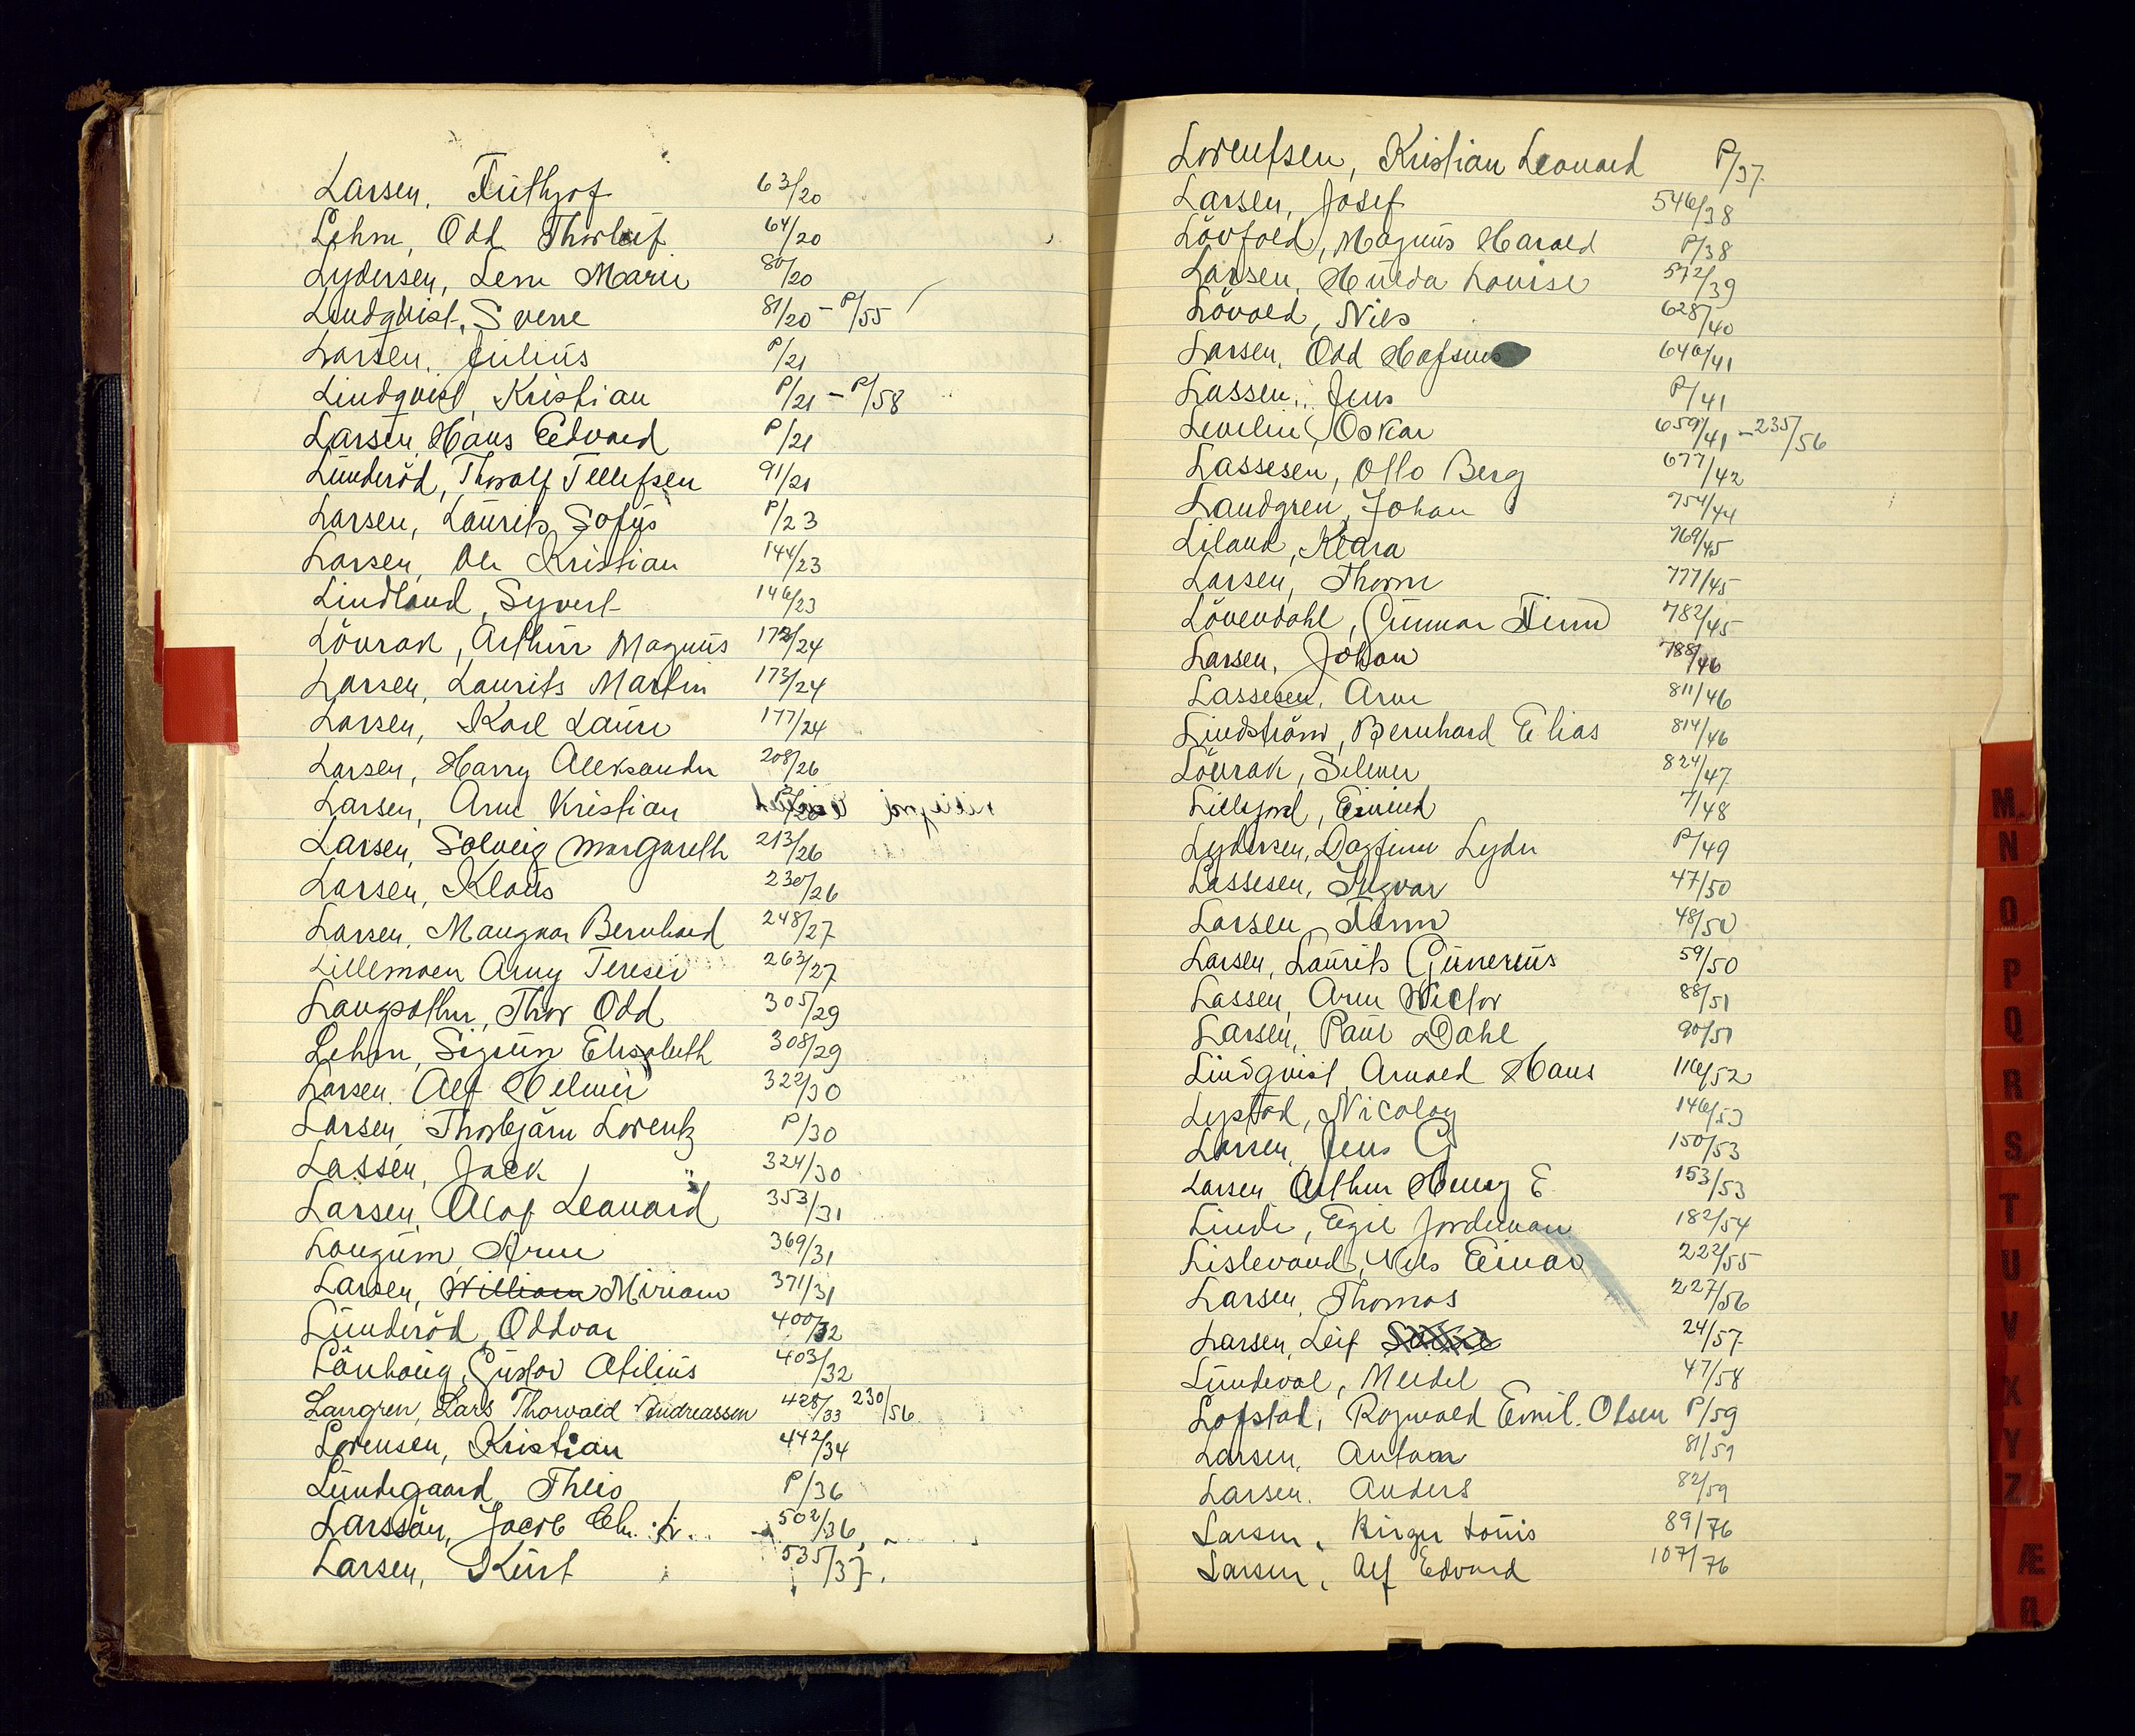 Larsen, Frithjof 63/20
Lehm, Odd Thorleif 64/20
Lydersen, Lene Marie 80/20
Lindqvist, Sverre 81/20 - P/55
Larsen, Julius P/21
Lindqvist, Kristian P/21 - P/58
Larsen, Hans Edvard P/21
Lunderöd, Thoralf Tellefsen 91/21
Larsen, Laurits Sofus P/23
Larsen, Ole Kristian 144/23
Lindland, Syvert 146/23
Lövrak, Arthur Magnus 172/24
Larsen, Laurits Martin 173/24
Larsen, Karl Laure 177/24
Larsen, Harry Aleksander 208/26
Larsen, Arne Kristian
Larsen, Solveig Margareth 213/26
Larsen, Klaus 230/26
Larsen, Mangnar Bernhard 248/27
Lillemoen Arny Terese 263/27
Langsother, Thor Odd 305/29
Lehm, Sigrun Elisabeth 308/29
Larsen, Alf Helmer 322/30
Larsen, Thorbjørn Lorentz P/30
Lassen, Jack 324/30
Larsen, Olof Leonard 353/31
Langum, Arne 369/31
Larsen, William Miriam 371/31
Lunderöd, Oddvar 400/32
Lönhaug, Gustav Atilius 403/32
Langren, Lars Thorvald Andreassen 428/33 230/56
Lorensen, Kristian 442/34
Lundegaard, Theis P/36
Larssön, Jacob Chr. 502/36
Larsen, Kurt 535/37.
Lorentsen, Kristian Leonard P/37.
Larsen, Josef 546/38
Lövfold, Magnus Harald P/38
Larsen, Hulda Louise 572/39
Lövold, Nils 628/40
Larsen, Odd Hafsm 640/41
Lassen, Jens P/41
Levelin, Oskar 659/41 - 235/56
Lassesen, Otto Berg 677/42
Landgren, Johan 754/44
Liland, Klara 769/45
Larsen, Thorm 777/45
Lövendahl, Gunnar Finn 782/45
Larsen, Johan 788/46
Lassesen, Arne 811/46
Lindström, Bernhard Elias 814/46
Lövrak, Selmer 824/47
Lillejord, Eivind 7/48
Lydersen, Dagfinn Lyder P/49
Lassesen, Ingvar 47/50
Larsen, Finn 48/50
Larsen, Laurits Gunerius 59/50
Lassen, Arne Victor 88/51
Larsen, Paul Dahl 90/51
Lindqvist, Arnold Hans 116/52
Lystad, Nicolay 146/53
Larsen, Jens G 150/53
Larsen, Arthur Henry E 153/53
Linde, Egil Jordeman 182/54
Lislevand, Nils Einar 222/55
Larsen, Thomas 227/56
Larsen, Leif 24/57
Lundevol, Meidel 47/58
Lofstad, Ragnvald Emil Olsen P/59
Larsen, Anton 81/59
Larsen, Anders 82/59
Larsen, Birger Louis 89/76
Larsen, Alf Edvard 107/76
M
N
O
P
Q
R
S
T
U
V
X
Y
Z
Æ
Ø